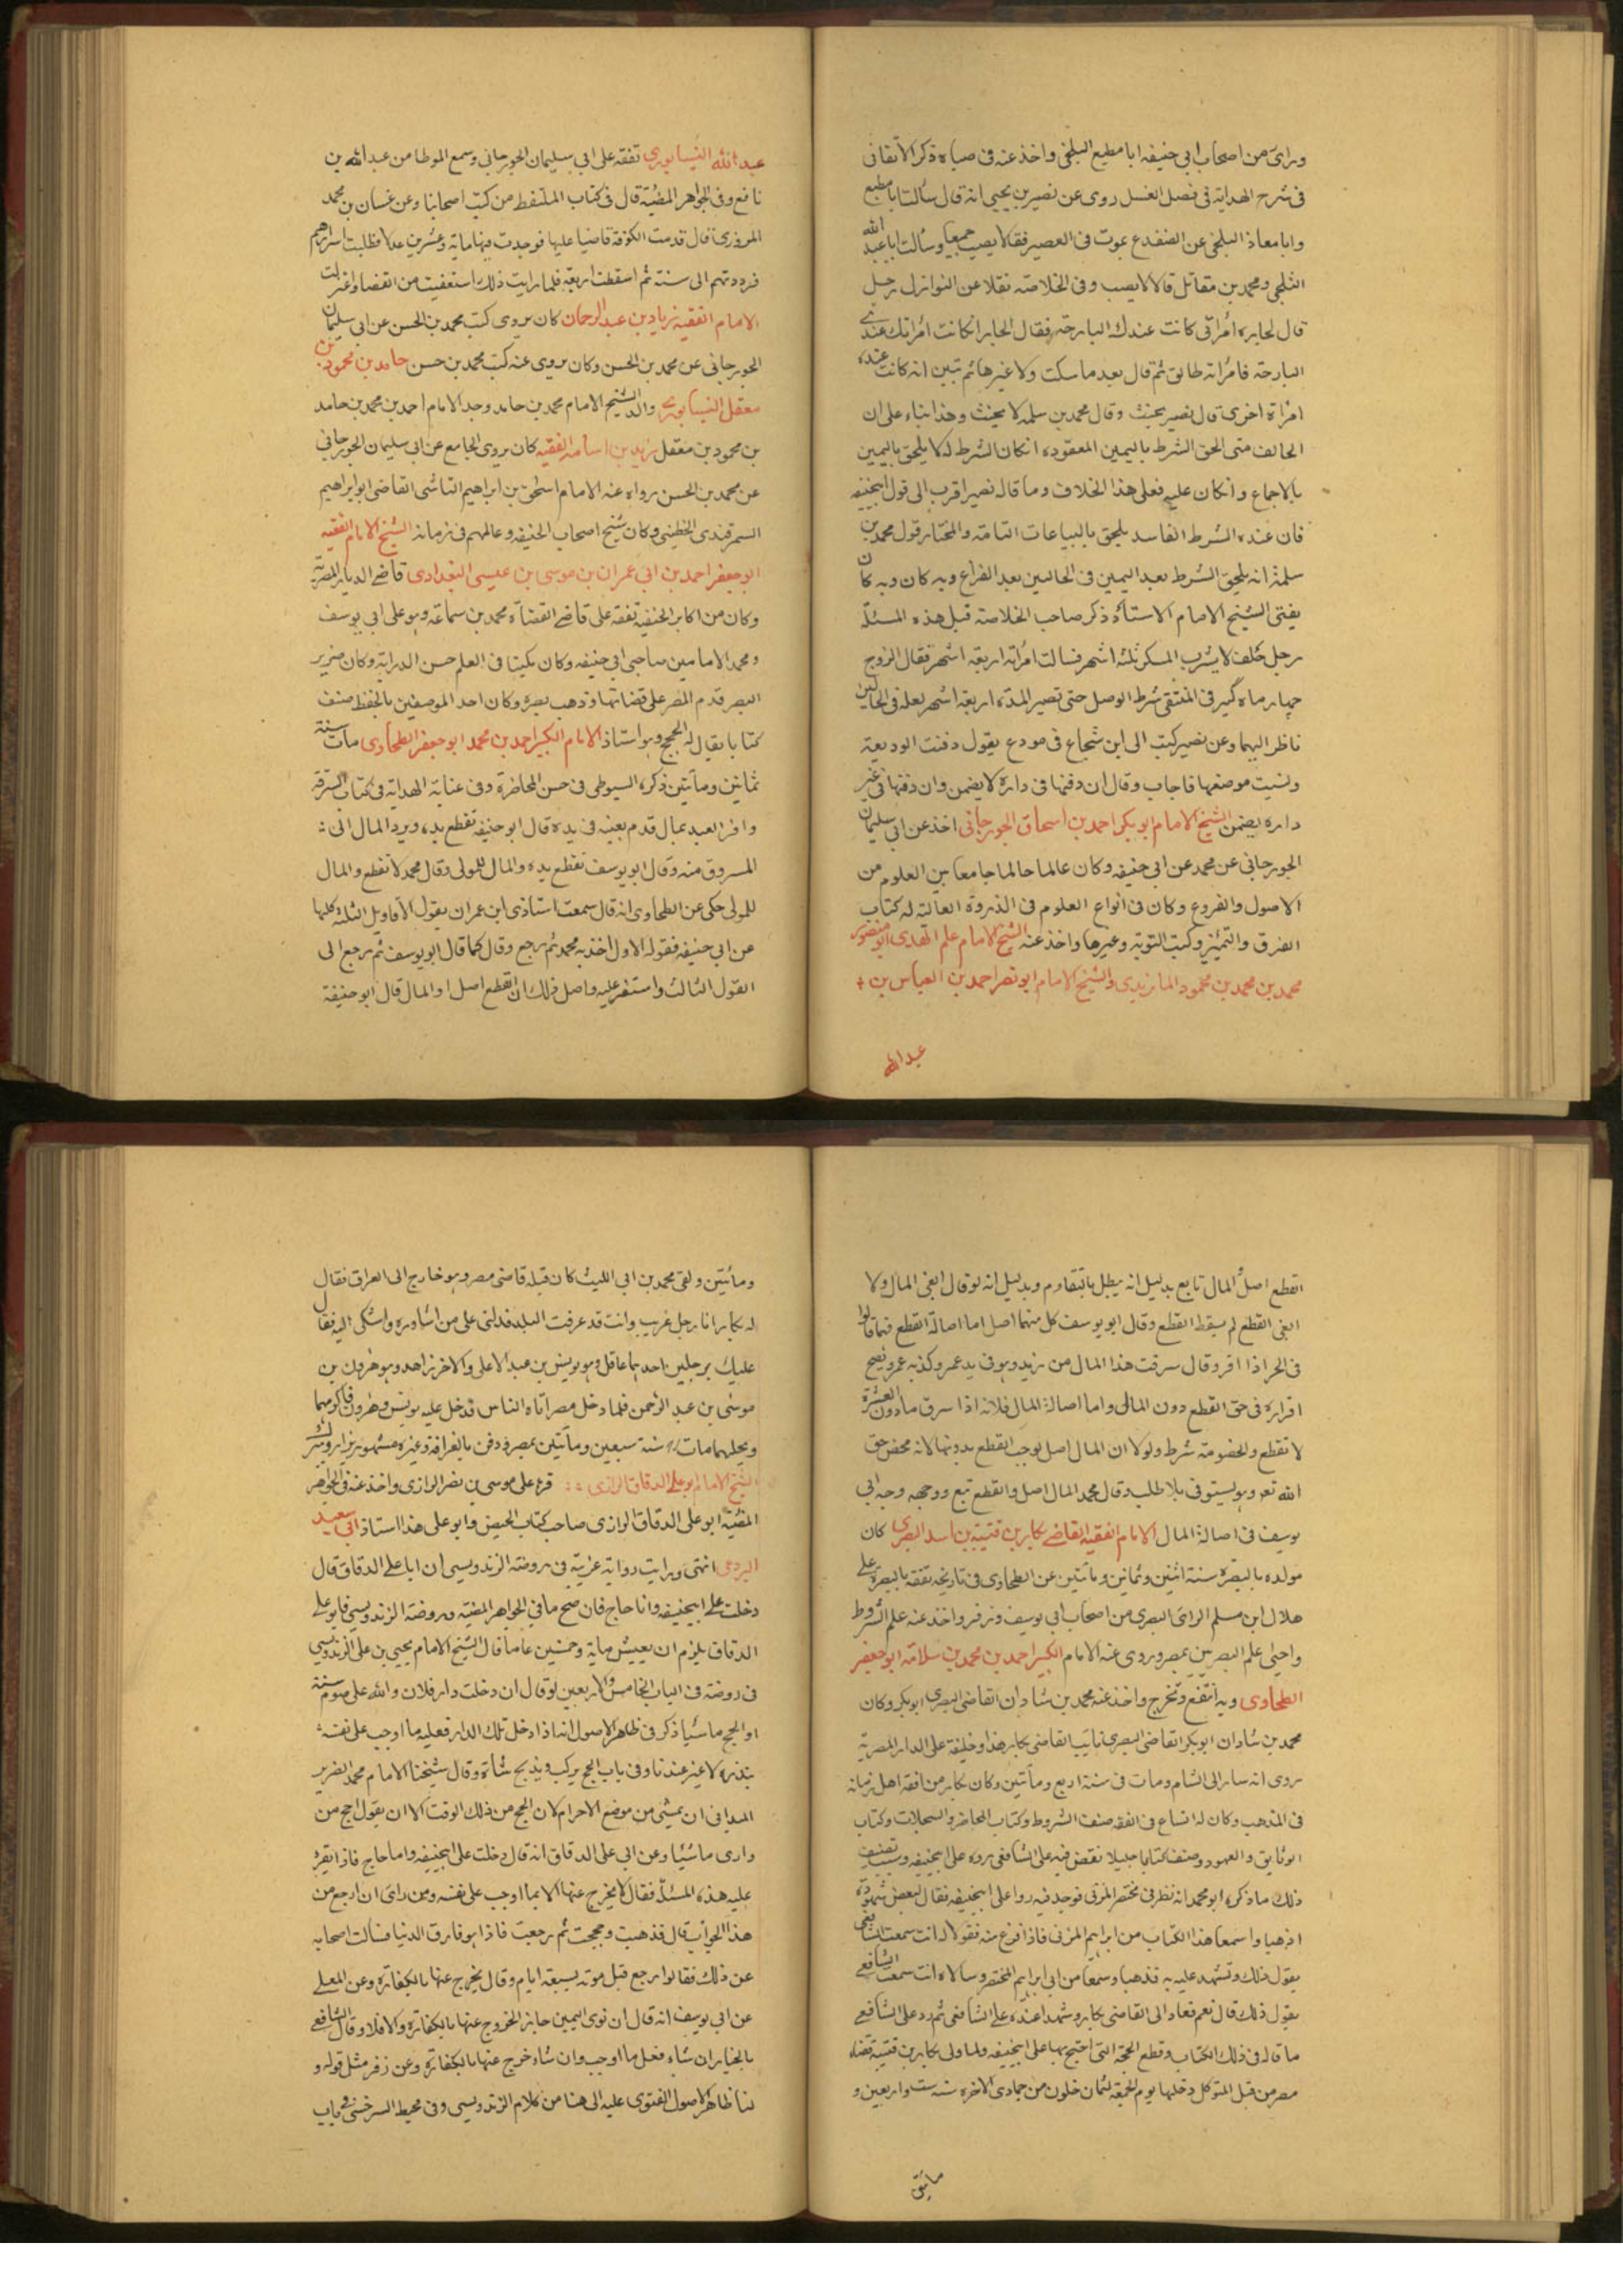 وراى من اصحاب ابي حنيفه ابا مطيع البلخي واخذ عنه في صباه ذكر الاتقاني
في شرح الهداية في فصل الغسل روى عن نصير بن يحيى انه قال سالت ابا مطيع
وابا معاذ البلخي عن الضفدع يموت في العصير فقالا يصب جميعا وسألت ابا عبد الله
الثلجي ومحمد بن مقاتل قالا لا يصب وفي الخلاصة نقلا عن النوازل رجل
قال لجاره امرأتي كانت عندك البارحة فقال الجار ان كانت امرأتك عندي
البارحة فامرأته طالق ثم قال بعد ما سكت ولا غيرها ثم تبين انه كانت عنده
امرأة اخرى قال نصير يحنث وقال محمد بن سلمه لا يحنث وهذا بناء على ان
الحالف متى الحق الشرط باليمين المعقوده ان كان الشرط له لا يلحق باليمين
بالاجماع وان كان عليه فعلى هذا الخلاف وما قاله نصير اقرب الى قول ابيحنيفه
فان عنده الشرط الفاسد يلحق بالبياعات التامة والمختار قول محمد بن
سلمة انه يلحق الشرط بعد اليمين في الحالين بعد الفراغ وبه كان وبه كان
يفتي الشيخ الامام الاستاذ ذكر صاحب الخلاصة قبل هذه المسئلة
رجل حلف لا يشرب المسكر ثلثه اشهر فسالت امرأته اربعة اشهر فقال الزوج
چهار ماه گير في المنتقى شرط الوصل حتى تصير المدة اربعة اشهر لعله في الحالين
ناظر اليهما وعن نصير كتب الى ابن شجاع في مودع يقول دفنت الوديعة
ونسيت موضعها فاجاب وقال ان دفنها في داره لا يضمن وان دفنها في غير
داره يضمن الشيخ الامام ابو بكر احمد بن اسحاق الجوزجاني اخذ عن ابي سليمان
الجوزجاني عن محمد عن ابي حنيفه وكان عالما جامعا بين العلوم من
الاصول والفروع وكان في انواع العلوم في الذروة العالية له كتاب
الفرق والتمييز وكتب التوبة وغيرها واخذ عنه الشيخ الامام علم الهدى ابو منصور
محمد بن محمد بن محمود الماتريدي والشيخ الامام ابو نصر احمد بن العباس بن
عبد الله
عبد الله النيسابوري تفقه على ابي سليمان الجوزجاني وسمع الموطا من عبد الله بن
نافع وفي الجواهر المضيّة قال في كتاب الملتقط من كتب اصحابنا وعن غسان بن محمد
المروزي قال قدمت الكوفة قاضيا عليها فوجدت فيها ماية وعشرين عدلا فطلبت اسرارهم
فرددتهم الى ستة ثم اسقطت اربعة فلما رايت ذلك استعفيت من القضا واعتزلت
الامام الفقيه زياد بن عبد الرحمان كان يروى كتب محمد بن الحسن عن ابي سليمان
الجوزجاني عن محمد بن الحسن وكان يروى عنه كتب محمد بن حسن حامد بن محمود بن
معقل النيسابوري والد الشيخ الامام محمد بن حامد وجد الامام احمد بن محمد بن حامد
بن محمود بن معقل يزيد بن اسامه الفقيه كان يروى الجامع عن ابي سليمان الجوزجاني
عن محمد بن الحسن رواه عنه الامام اسحق بن ابراهيم الشاشي القاضي ابو ابراهيم
السمرقندي الخطيبي وكان شيخ اصحاب الحنيفه وعالمهم في زمانه الشيخ الامام الفقيه
ابو جعفر احمد بن ابي عمران بن موسى بن عيسى البغدادي قاضي الديار المصرية
وكان من اكابر الحنفية تفقه على قاضي القضاة محمد بن سماعه وهو على ابي يوسف
ومحمد الامامين صاحبي ابي حنيفه وكان مكينا في العلم حسن الدراية وكان ضرير
البصر قدم المصر على قضائها وذهب بصره وكان احد الموصفين بالحفظ صنف
كتابا يقال له الحجج وهو استاذ الامام الكبير احمد بن محمد ابو جعفر الطحاوي مات سنة
ثمانين ومأتين ذكره السيوطي في حسن المحاضرة وفي عناية الهداية في كتاب السرقة
واقر العبد بمال قدم بعينه في يده قال ابو حنيفه تقطع يده ويرد المال الى
المسروق منه وقال ابو يوسف تقطع يده والمال للمولى وقال محمد لا تقطع والمال
للمولى حكى عن الطحاوي انه قال سمعت استاذي ابن عمران يقول الاقاويل الثلثة كلها
عن ابي حنيفه فقوله الاول اخذ به محمد ثم رجع وقال كما قال ابو يوسف ثم رجع الى
القول الثالث واستقر عليه واصل ذلك ان القطع اصل او المال قال ابو حنيفة
القطع اصل المال تابع بدليل انه يبطل بالتقادم وبدليل انه لو قال ابغي المال ولا
ابغي القطع لم يسقط القطع وقال ابو يوسف كل منهما اصل اما اصالة القطع فما قالوا
في الحر اذا اقر وقال سرقت هذا المال من زيد وهو في يد عمرو وكذبه عمرو يصح
اقراره في حق القطع دون المال واما اصالة المال فلانه اذا سرق ما دون العشرة
لا تقطع والخصومة شرط ولولا ان المال اصل لوجب القطع بدونها لانه محض حق
الله تعا ويستوفى بلا طلب وقال محمد المال اصل والقطع تبع ووجهه وجه ابي
يوسف في اصالة المال الامام الفقيه القاضي بكار بن قتيبة بن اسد البصري كان
مولده بالبصرة سنة اثنين وثمانين ومأتين عن الطحاوي في تاريخه تفقه بالبصرة على
هلال ابن مسلم الراى البصري من اصحاب ابي يوسف وزفر واخذ عنه علم الشروط
واحيى علم البصريين بمصر وروى عنه الامام الكبير احمد بن محمد بن سلامة ابو جعفر
الطحاوي وبه انتفع وتخرج واخذ عنه محمد بن شادان القاضي البصري ابو بكر وكان
محمد بن شادان ابو بكر القاضي البصري نايب القاضي بكار هذا وخليفة على الدار المصرية
روى انه سار الى الشام ومات في سنة اربع ومأتين وكان بكار من افقه اهل زمانه
في المذهب وكان له اتساع في الفقه صنف الشروط وكتاب المحاضر والسجلات وكتاب
الوثايق والعهود وصنف كتابا جليلا نقض فيه على الشافعي رده على ابيحنيفه وسبب تصنيف
ذلك ما ذكره ابو محمد انه نظر في مختصر المزني فوجد فيه ردا على ابيحنيفه فقال لبعض شهوده
اذهبا واسمعا هذا الكتاب من ابراهيم المزني فاذا فرغ منه فقولا له انت سمعت الشافعي
يقول ذلك وتشهد عليه به فذهبا وسمعا من ابي ابراهيم المختصر وسالاه انت سمعت الشافعي
يقول ذلك قال نعم فعاد الى القاضي بكار وشهدا عنده على الشافعي ثم رد على الشافعي
ما قاله في ذلك الكتاب وقطع الحجة التي احتج بها على ابيحنيفه ولما ولى بكار بن قتيبة قضاء
مصر من قبل المتوكل دخلها يوم الجمعة لثمان خلون من جمادى الاخره سنه ست واربعين و
مائتين
ومائتين ولقى محمد بن ابي الليث كان قبله قاضي مصر وهو خارج الى العراق فقال
له بكار انا رجل غريب وانت قد عرفت البلد فدلني على من اشاوره واشكى اليه فقال
عليك برجلين احدهما عاقل وهو يونس بن عبد الاعلى والاخر زاهد وهو هرون بن
موسى بن عبد الرحمن فلما دخل مصر اتاه الناس فدخل عليه يونس وهرون فاكرمهما
ويجلهما مات سنة سبعين ومأتين بمصر ودفن بالقرافة وغيره مشهور يزار ويتبرك
الشيخ الامام ابو علي الدقاق الرازي قرء على موسى بن نصر الرازي واخذ عنه في الجواهر
المضيّة ابو علي الدقاق الرازي صاحب كتاب الحيض وابو علي هذا استاذ ابي سعيد
البردعي انتهى ورايت رواية غريبة في روضة الزندويسي ان ابا علي الدقاق قال
دخلت على ابيحنيفه وانا حاج فان صح ما في الجواهر المضية وروضة الزندويسي فابو علي
الدقاق يلزم ان يعيش ماية وخمسين عاما قال الشيخ الامام يحيى بن على الزندويسي
في روضته في الباب الخامس والاربعين لو قال ان دخلت دار فلان والله على صوم سنة
او الحج ماشيا ذكر في ظاهر الاصول انه اذا دخل تلك الدار فعليه ما اوجب على نفسه
بنذره لا غير عندنا وفي باب الحج يركب ويذبح شاة وقال شيخنا الامام محمد الضرير
الميداني ان يمشي من موضع الاحرام لان الحج من ذلك الوقت الا ان يقول احج من
داري ماشيا وعن ابي علي الدقاق انه قال دخلت على ابيحنيفه وانا حاج فاذا يقرء
عليه هذه المسئلة فقال لا يخرج عنها الا بما اوجب على نفسه ومن راى ان ارجع من
هذا الجواب قال فذهبت وحججت ثم رجعت فاذا هو فارق الدنيا فسالت اصحابه
عن ذلك فقالوا رجع قبل موته بسبعة ايام وقال يخرج عنها بالكفارة وعن المعلى
عن ابي يوسف انه قال ان نوى اليمين جايز الخروج عنها بالكفارة والا فلا وقال الشافعي
بالخيار ان شاء فعل ما اوجب وان شاء خرج عنها بالكفارة وعن زفر مثل قوله و
لنا ظاهر الاصول الفتوى عليه الى هنا من كلام الزندويسي وفي محيط السرخسي في باب